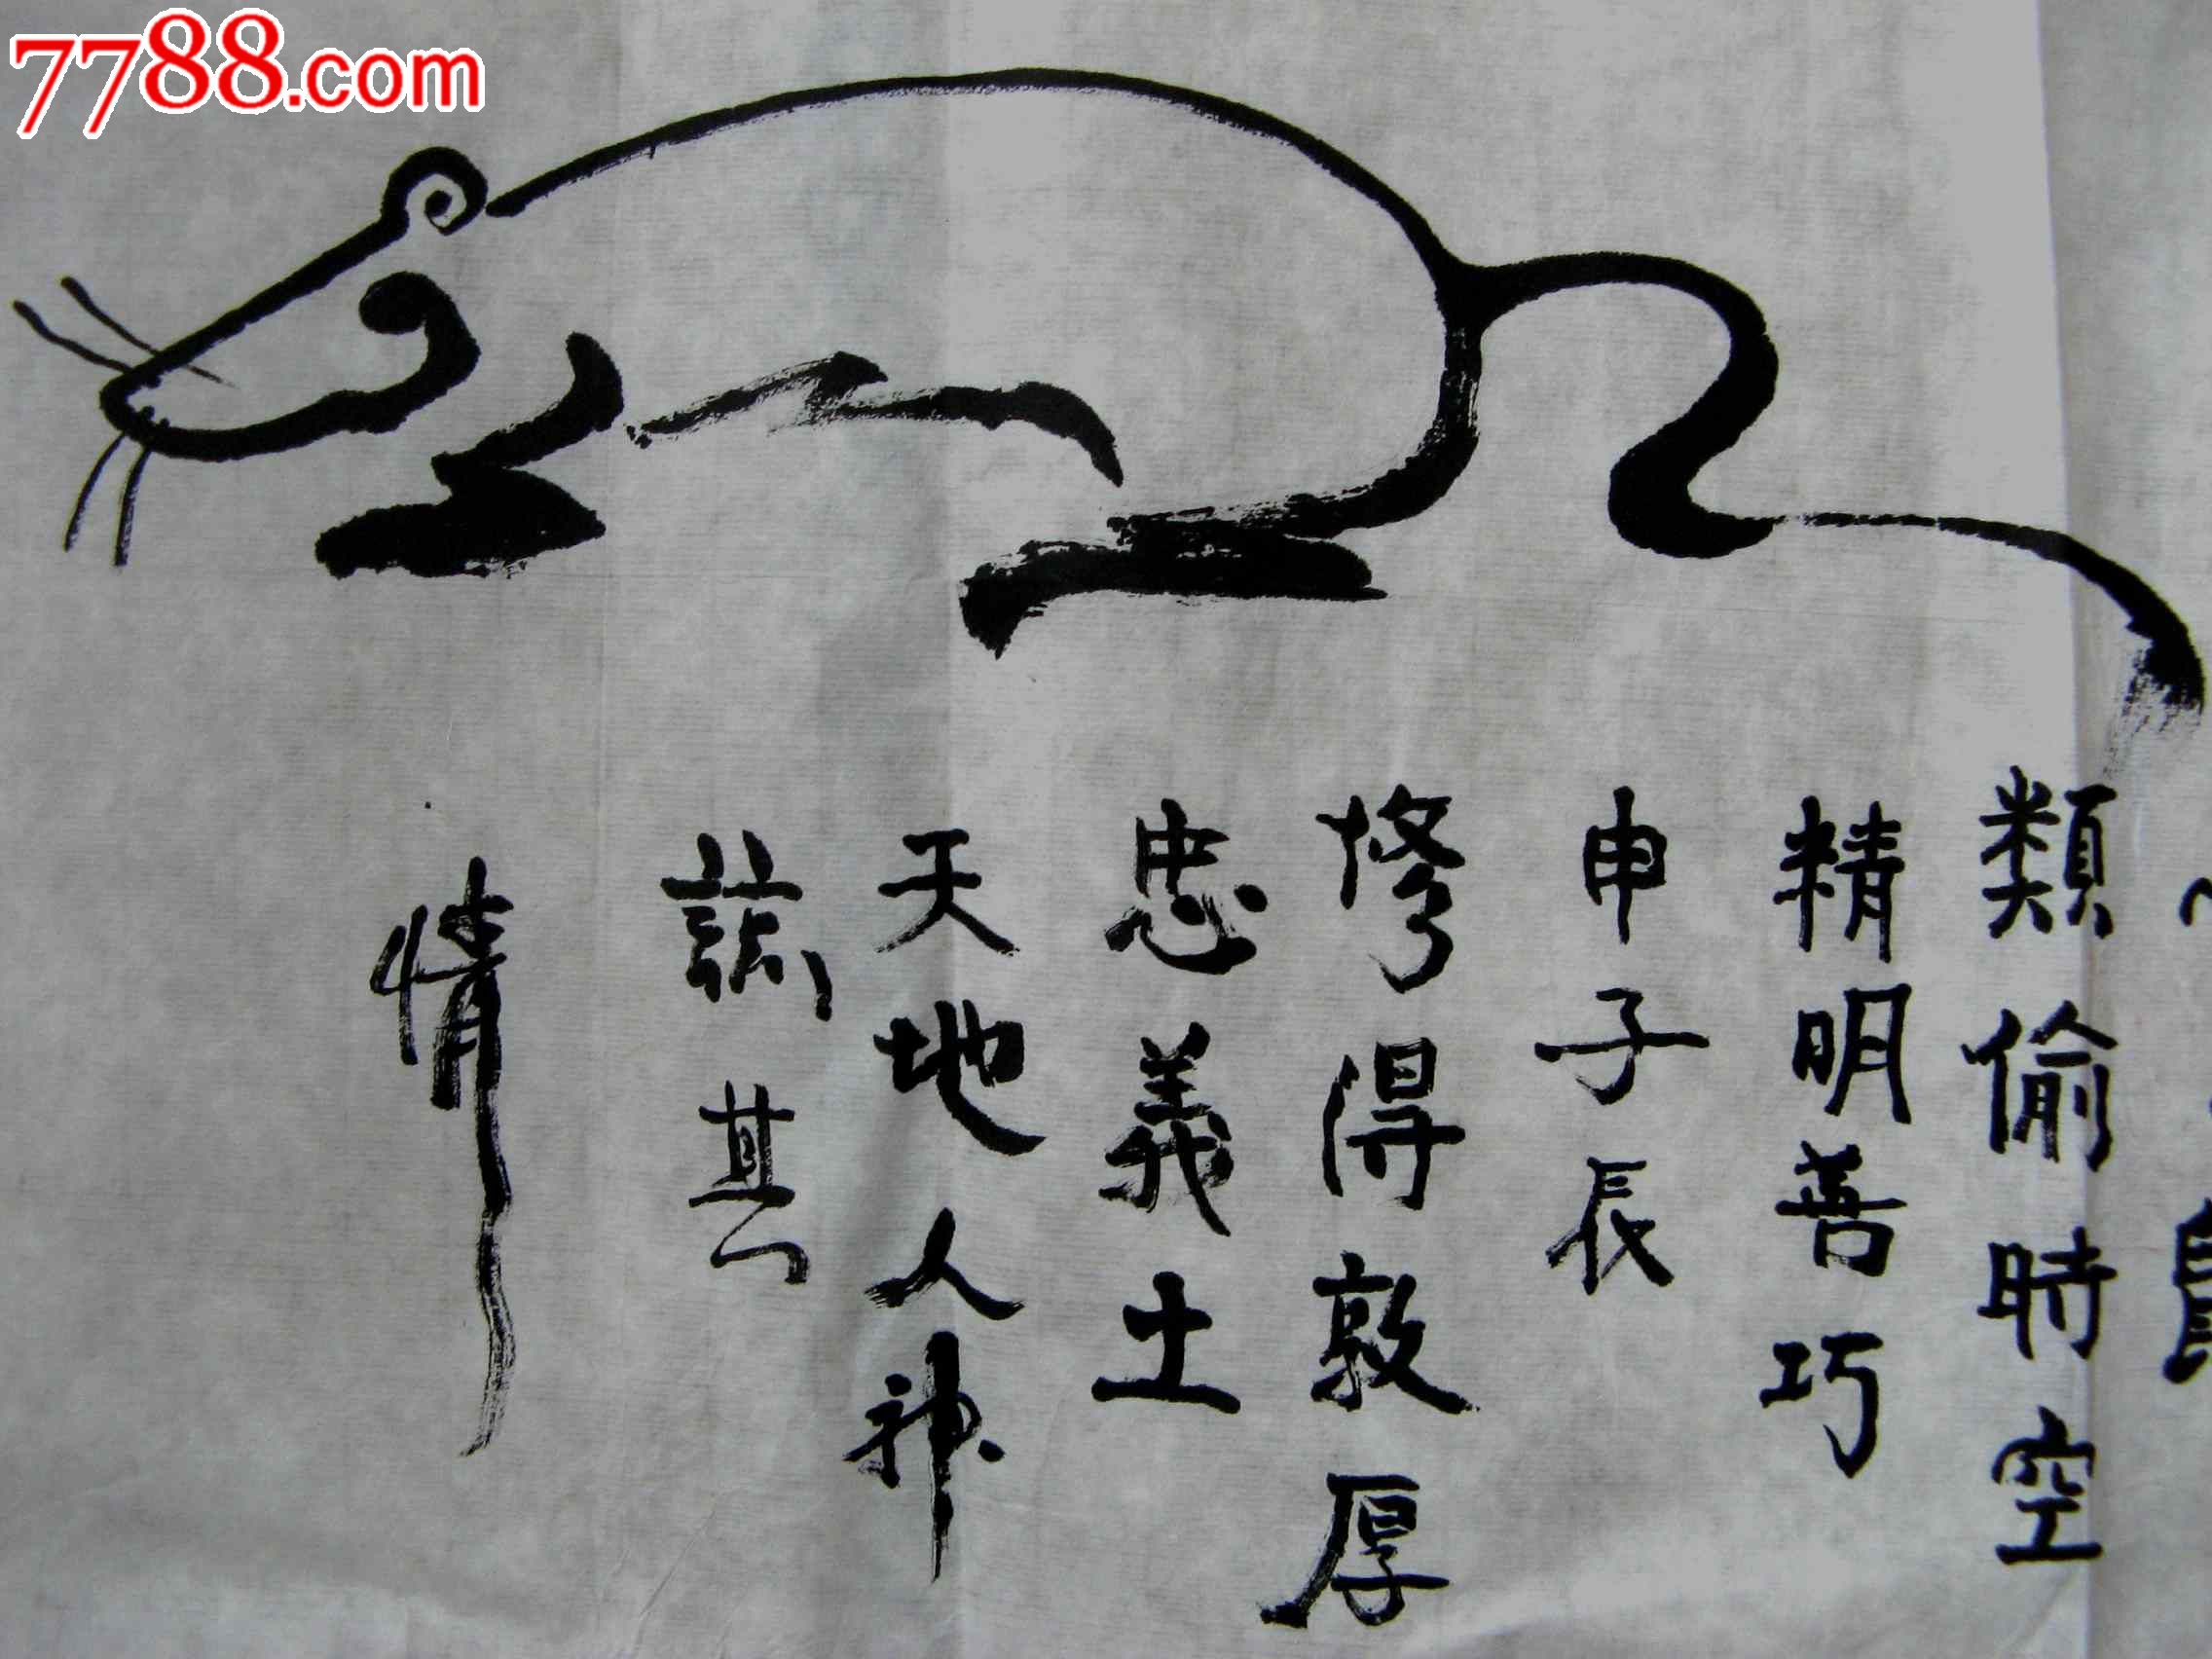 7788.com
類偷時空
精明善巧
申子辰
修得敦厚
忠義土
天地人神
誌其
情